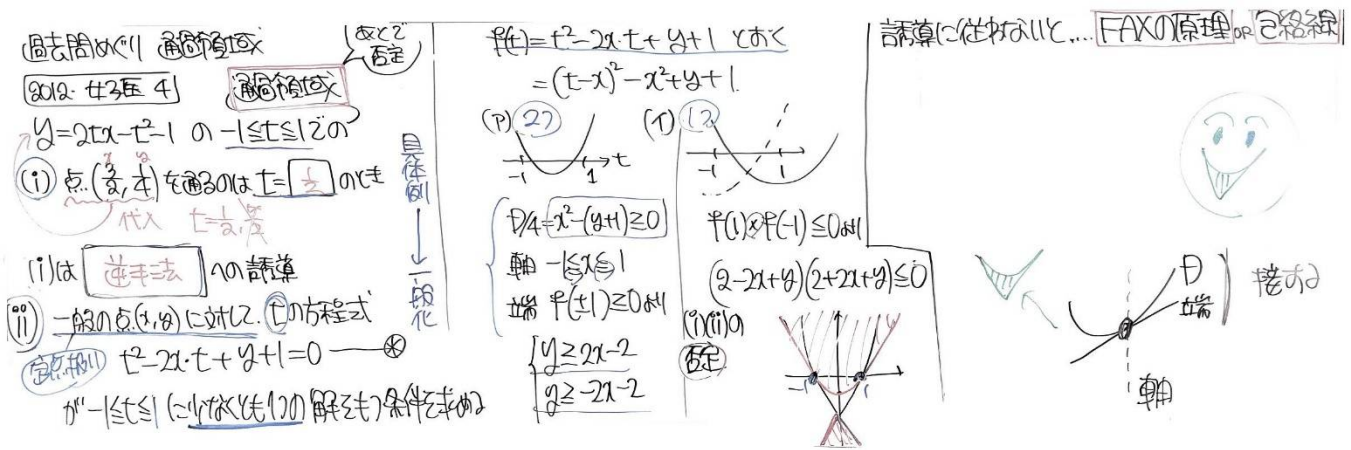 過去問めぐり 通過領域
あとで
否定
2012. 女子医 4
通過領域
y=2tx-t²-1 の -1≦t≦1での
(i) 点(3/2, 5/4)を通るのは t=1/2 のとき
代入 t=1/2, 5/2
(i)は 逆手法 への誘導
(ii) 一般の点(x,y)に対して、tの方程式
定点扱い t²-2x・t+y+1=0 ―※
が -1≦t≦1 に少なくとも1つの解をもつ条件を求める
具体例
→
一般化
f(t)=t²-2x・t+y+1 とおく
=(t-x)²-x²+y+1
(ア) 2つ
-1 1 t
D/4=x²-(y+1)≧0
軸 -1≦x≦1
端 f(±1)≧0より
y≧2x-2
y≧-2x-2
(イ) 1つ
-1 1
f(1)×f(-1)≦0より
(2-2x+y)(2+2x+y)≦0
(i)(ii)の
否定
-1 1
誘導に従わないと... FAXの原理 or 包絡線
D
端
接する
軸